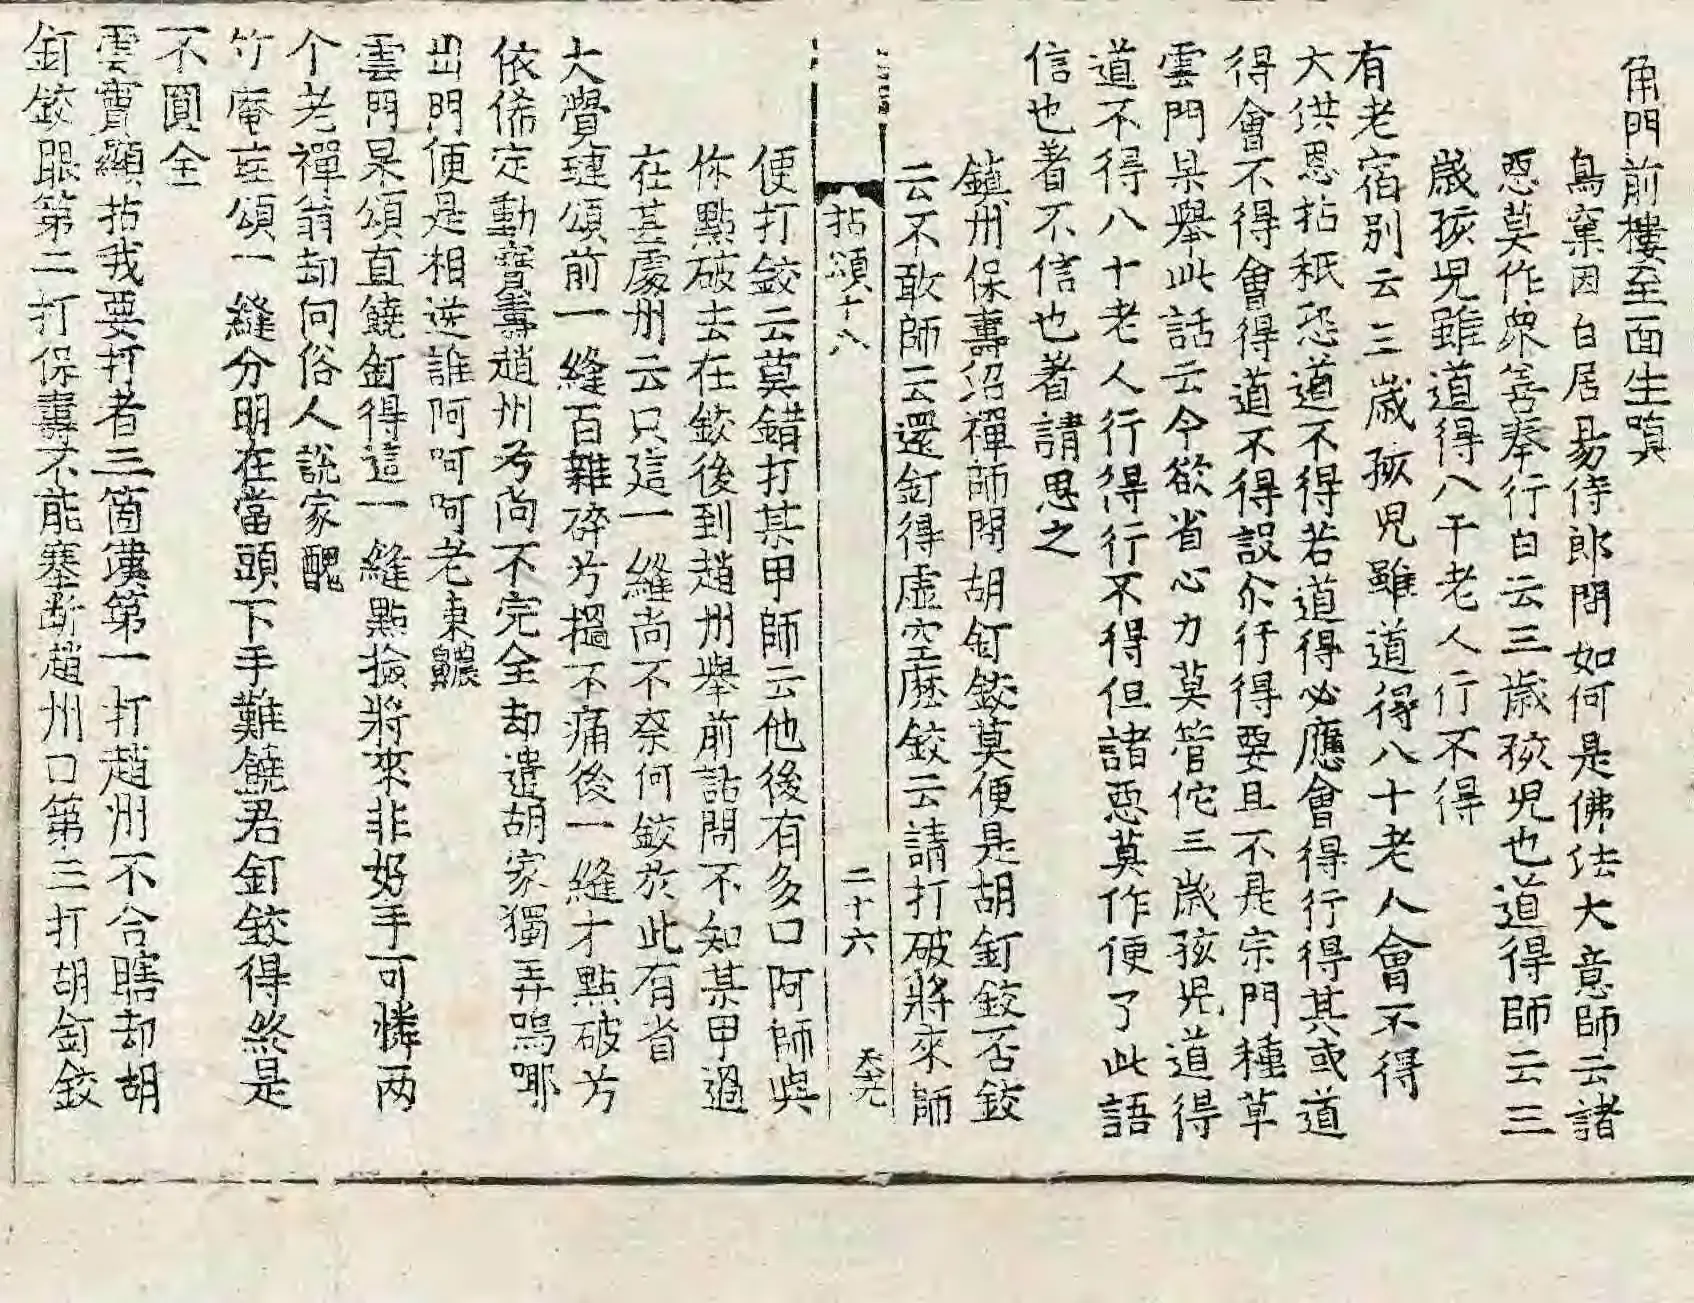 角門前樓至面生嗔
鳥窠因白居易侍郎問如何是佛法大意師云諸
惡莫作衆善奉行白云三歲孩児也道得師云三
歲孩児雖道得八十老人行不得
有老宿別云三歲孩児雖道得八十老人會不得
大洪恩拈秖恐道不得若道得必應會得行得其或道
得會不得會得道不得設尒行得要且不是宗門種草
雲門杲舉此話云今欲省心力莫管佗三歲孩児道得
道不得八十老人行得行不得但諸惡莫作便了此語
信也著不信也著請思之
鎮州保壽沼禪師問胡釘鉸莫便是胡釘鉸否鉸
云不敢師云還釘得虛空麽鉸云請打破將來師
拈頌十八 二十六
便打鉸云莫錯打某甲師云他後有多口阿師與
你點破去在鉸後到趙州舉前話問不知某甲過
在甚處州云只這一縫尚不柰何鉸於此有省
大覺璉頌前一縫百雜碎兮搵不痛後一縫才點破兮
依俙定動寶壽趙州兮尚不完全却遣胡家獨弄嗚㖿
出門便是相逆誰阿呵呵老東𪖦
雲門杲頌直饒釘得這一縫點撿將來非好手可憐两
个老禪翁却向俗人說家醜
竹庵珪頌一縫分明在當頭下手難饒君釘鉸得終是
不圓全
雲竇顯拈我要打者三箇漢第一打趙州不合瞎却胡
釘鉸眼第二打保壽不能塞断趙州口第三打胡釘鉸